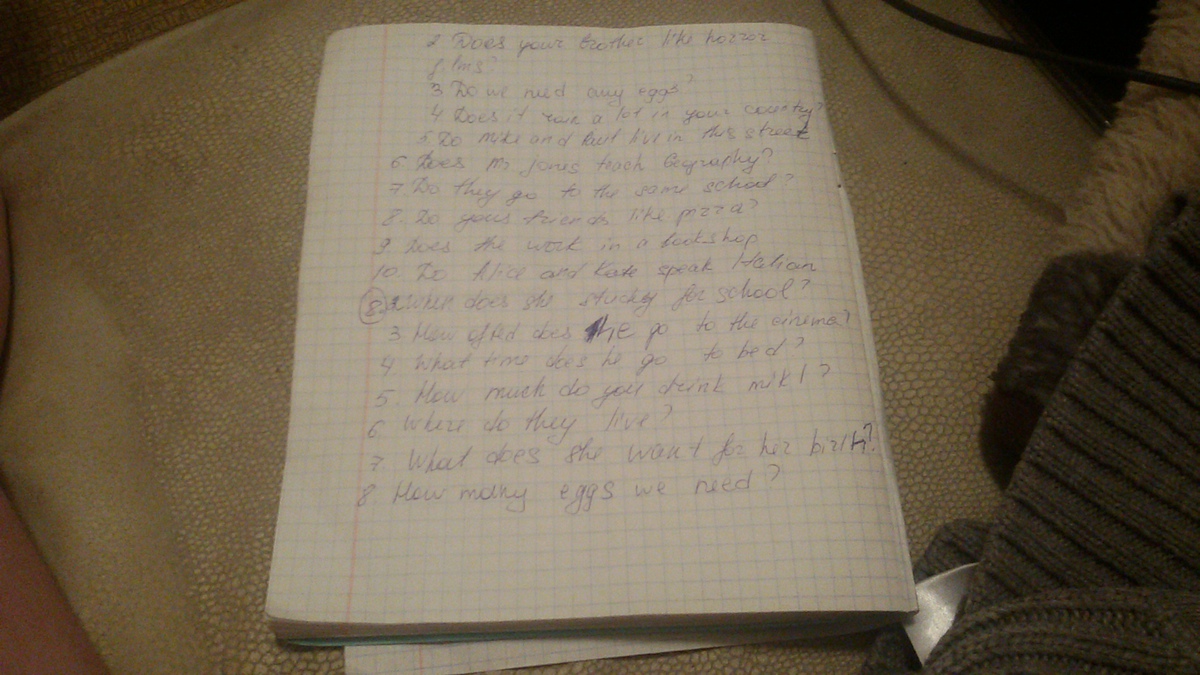 2 Does your brother like horror
films?
3 Do we need any eggs?
4 Does it rain a lot in your country?
5. Do Mike and live in this street
6 Does Mr Jones teach Geography?
7. Do they go to the same school?
8. Do your friends like pizza?
9 Does the work in a bookshop
10. Do Alice and Kate speak Italian
8. 2 When does she study for school?
3 How often does he go to the cinema?
4 What time does he go to bed?
5. How much do you drink milk?
6 Where do they live?
7. What does she want for her birth?
8 How many eggs we need?